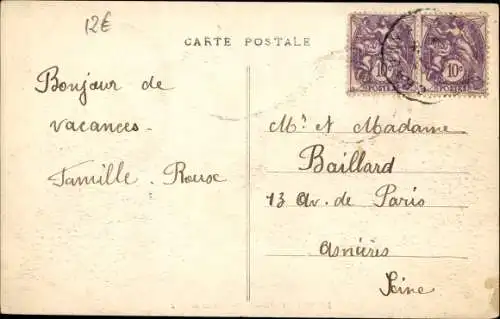 12€
CARTE POSTALE
10c
POSTES
10c
POSTES
Bonjour de
vacances.
Famille. Rouse
Mr et Madame
Baillard
13 Av. de Paris
Asnières
Seine